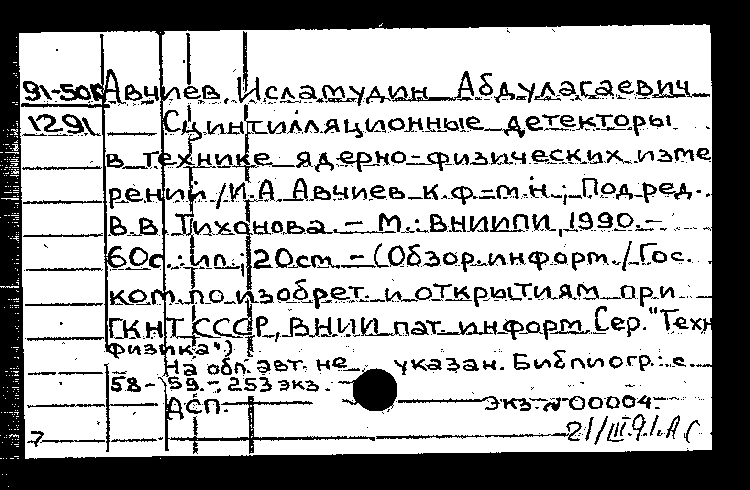 91-50К Авчиев, Исламудин Абдулагаевич
1291 Сцинтилляционные детекторы
в технике ядерно-физических изме
рений/И.А. Авчиев к.ф.-м.н.; Под ред.
В.В. Тихонова. - М.: ВНИИПИ, 1990.-
60с.: ил.; 20см. - (Обзор. информ./Гос.
ком. по изобрет. и открытиям при
ГКНТ СССР, ВНИИ пат. информ. Сер. "Техн
физика")
На обл. авт. не указан. Библиогр.: с
58-59.-, 253 экз.
ДСП. экз. №00004.
21/III.91.
7